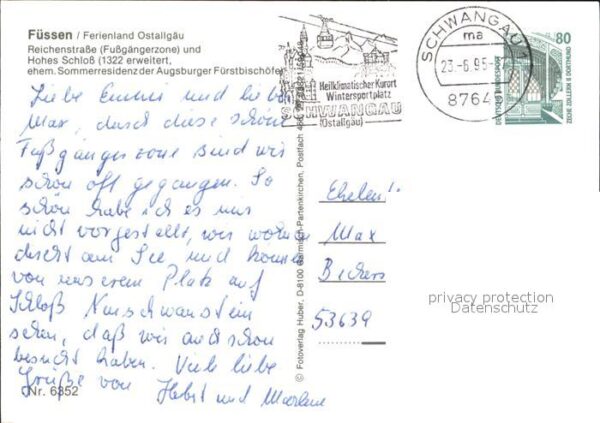 Füssen / Ferienland Ostallgäu
Reichenstraße (Fußgängerzone) und
Hohes Schloß (1322 erweitert,
ehem. Sommerresidenz der Augsburger Fürstbischöfe)
Liebe Emmi und lieber
Max, durch diese schöne
Fußgängerzone sind wir
schon oft gegangen. So
schön habe ich es mir
nicht vorgestellt, wir wohnen
direkt am See und können
von unserem Platz auf
Schloß Neuschwanstein
sehen, daß wir auch schon
besucht haben. Viele liebe
Grüße von
und Marlene
Nr. 6352
Heilklimatischer Kurort
Wintersportplatz
SCHWANGAU
(Ostallgäu)
SCHWANGAU 1
ma
23.-6.95.-
8764
80
DEUTSCHE BUNDESPOST
ZECHE ZOLLERN II DORTMUND
© Fotoverlag Huber, D-8100 Garmisch-Partenkirchen, Postfach
Eheleute
Max
53639
privacy protection
Datenschutz